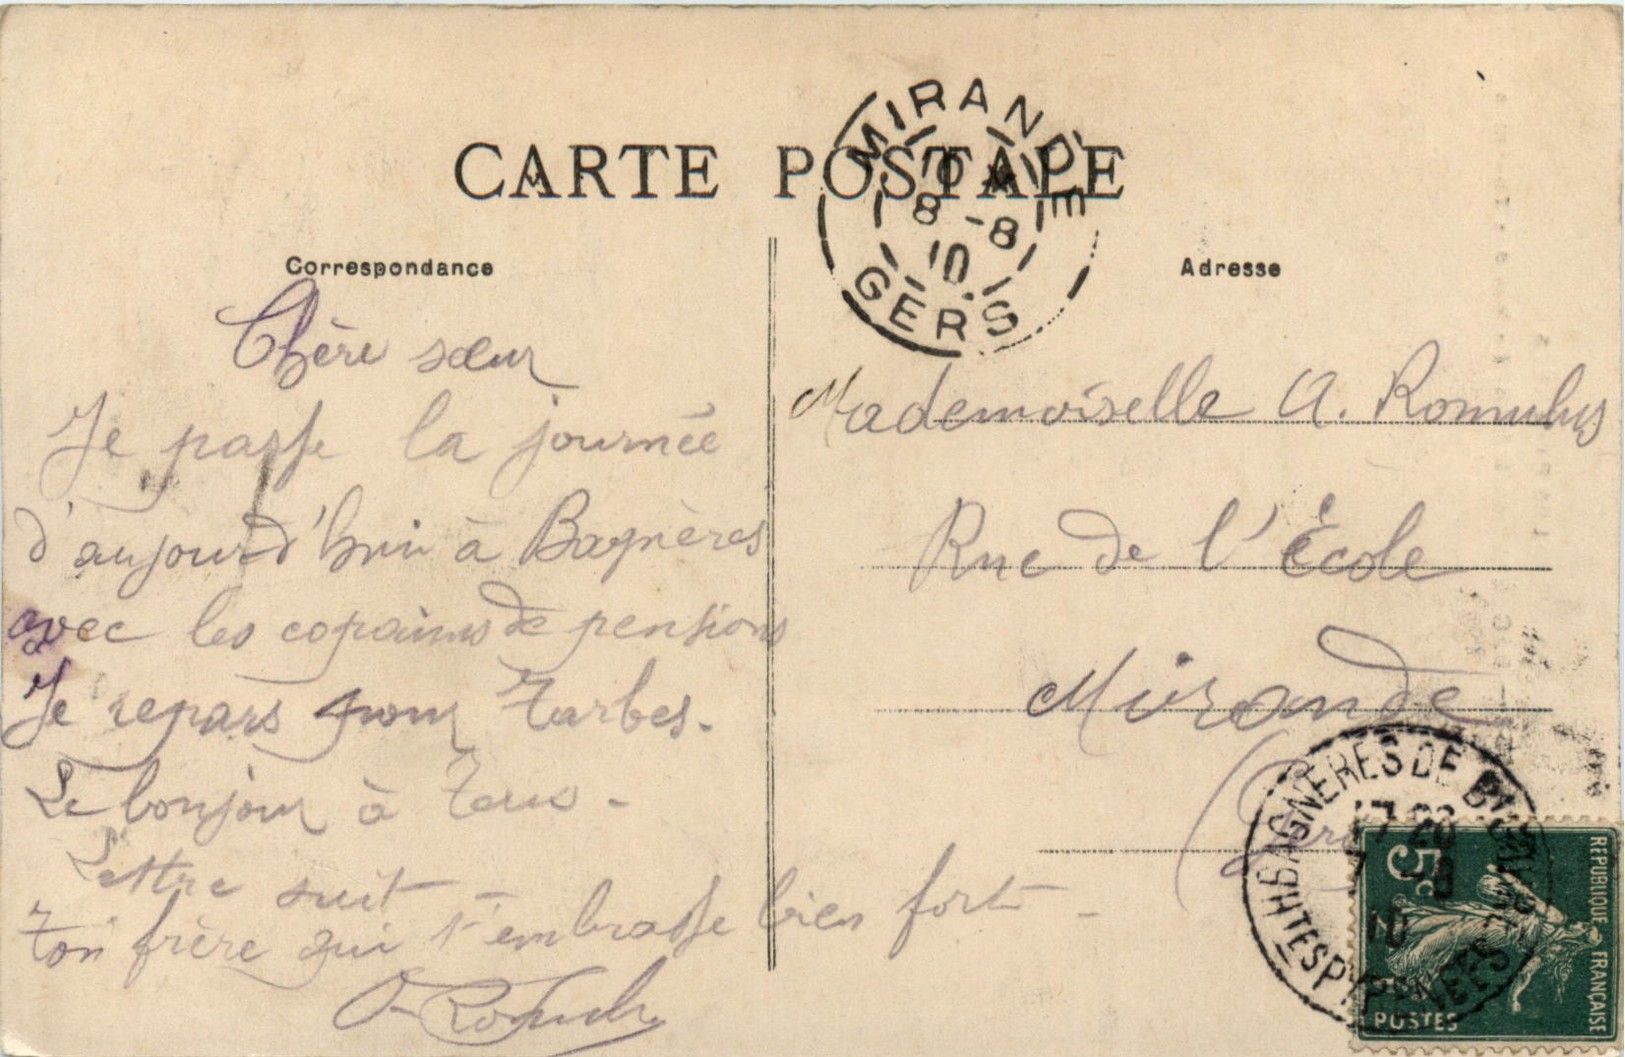 CARTE POSTALE
MIRANDE
10
8 -8
10
GERS
Correspondance
Adresse
Chère sœur
Je passe la journée
d'aujourd'hui à Bagnères
avec les copains de pensions
Je repars pour Tarbes.
Le bonjour à Tous -
Lettre suit -
Ton frère qui t'embrasse bien fort -
Mademoiselle A. Romulus
Rue de l'École
Mirande
(Gers
BAGNÈRES DE BIGORRE
HTES PYRENEES
17 20
7 -8
10
5c
REPUBLIQUE FRANÇAISE
POSTES